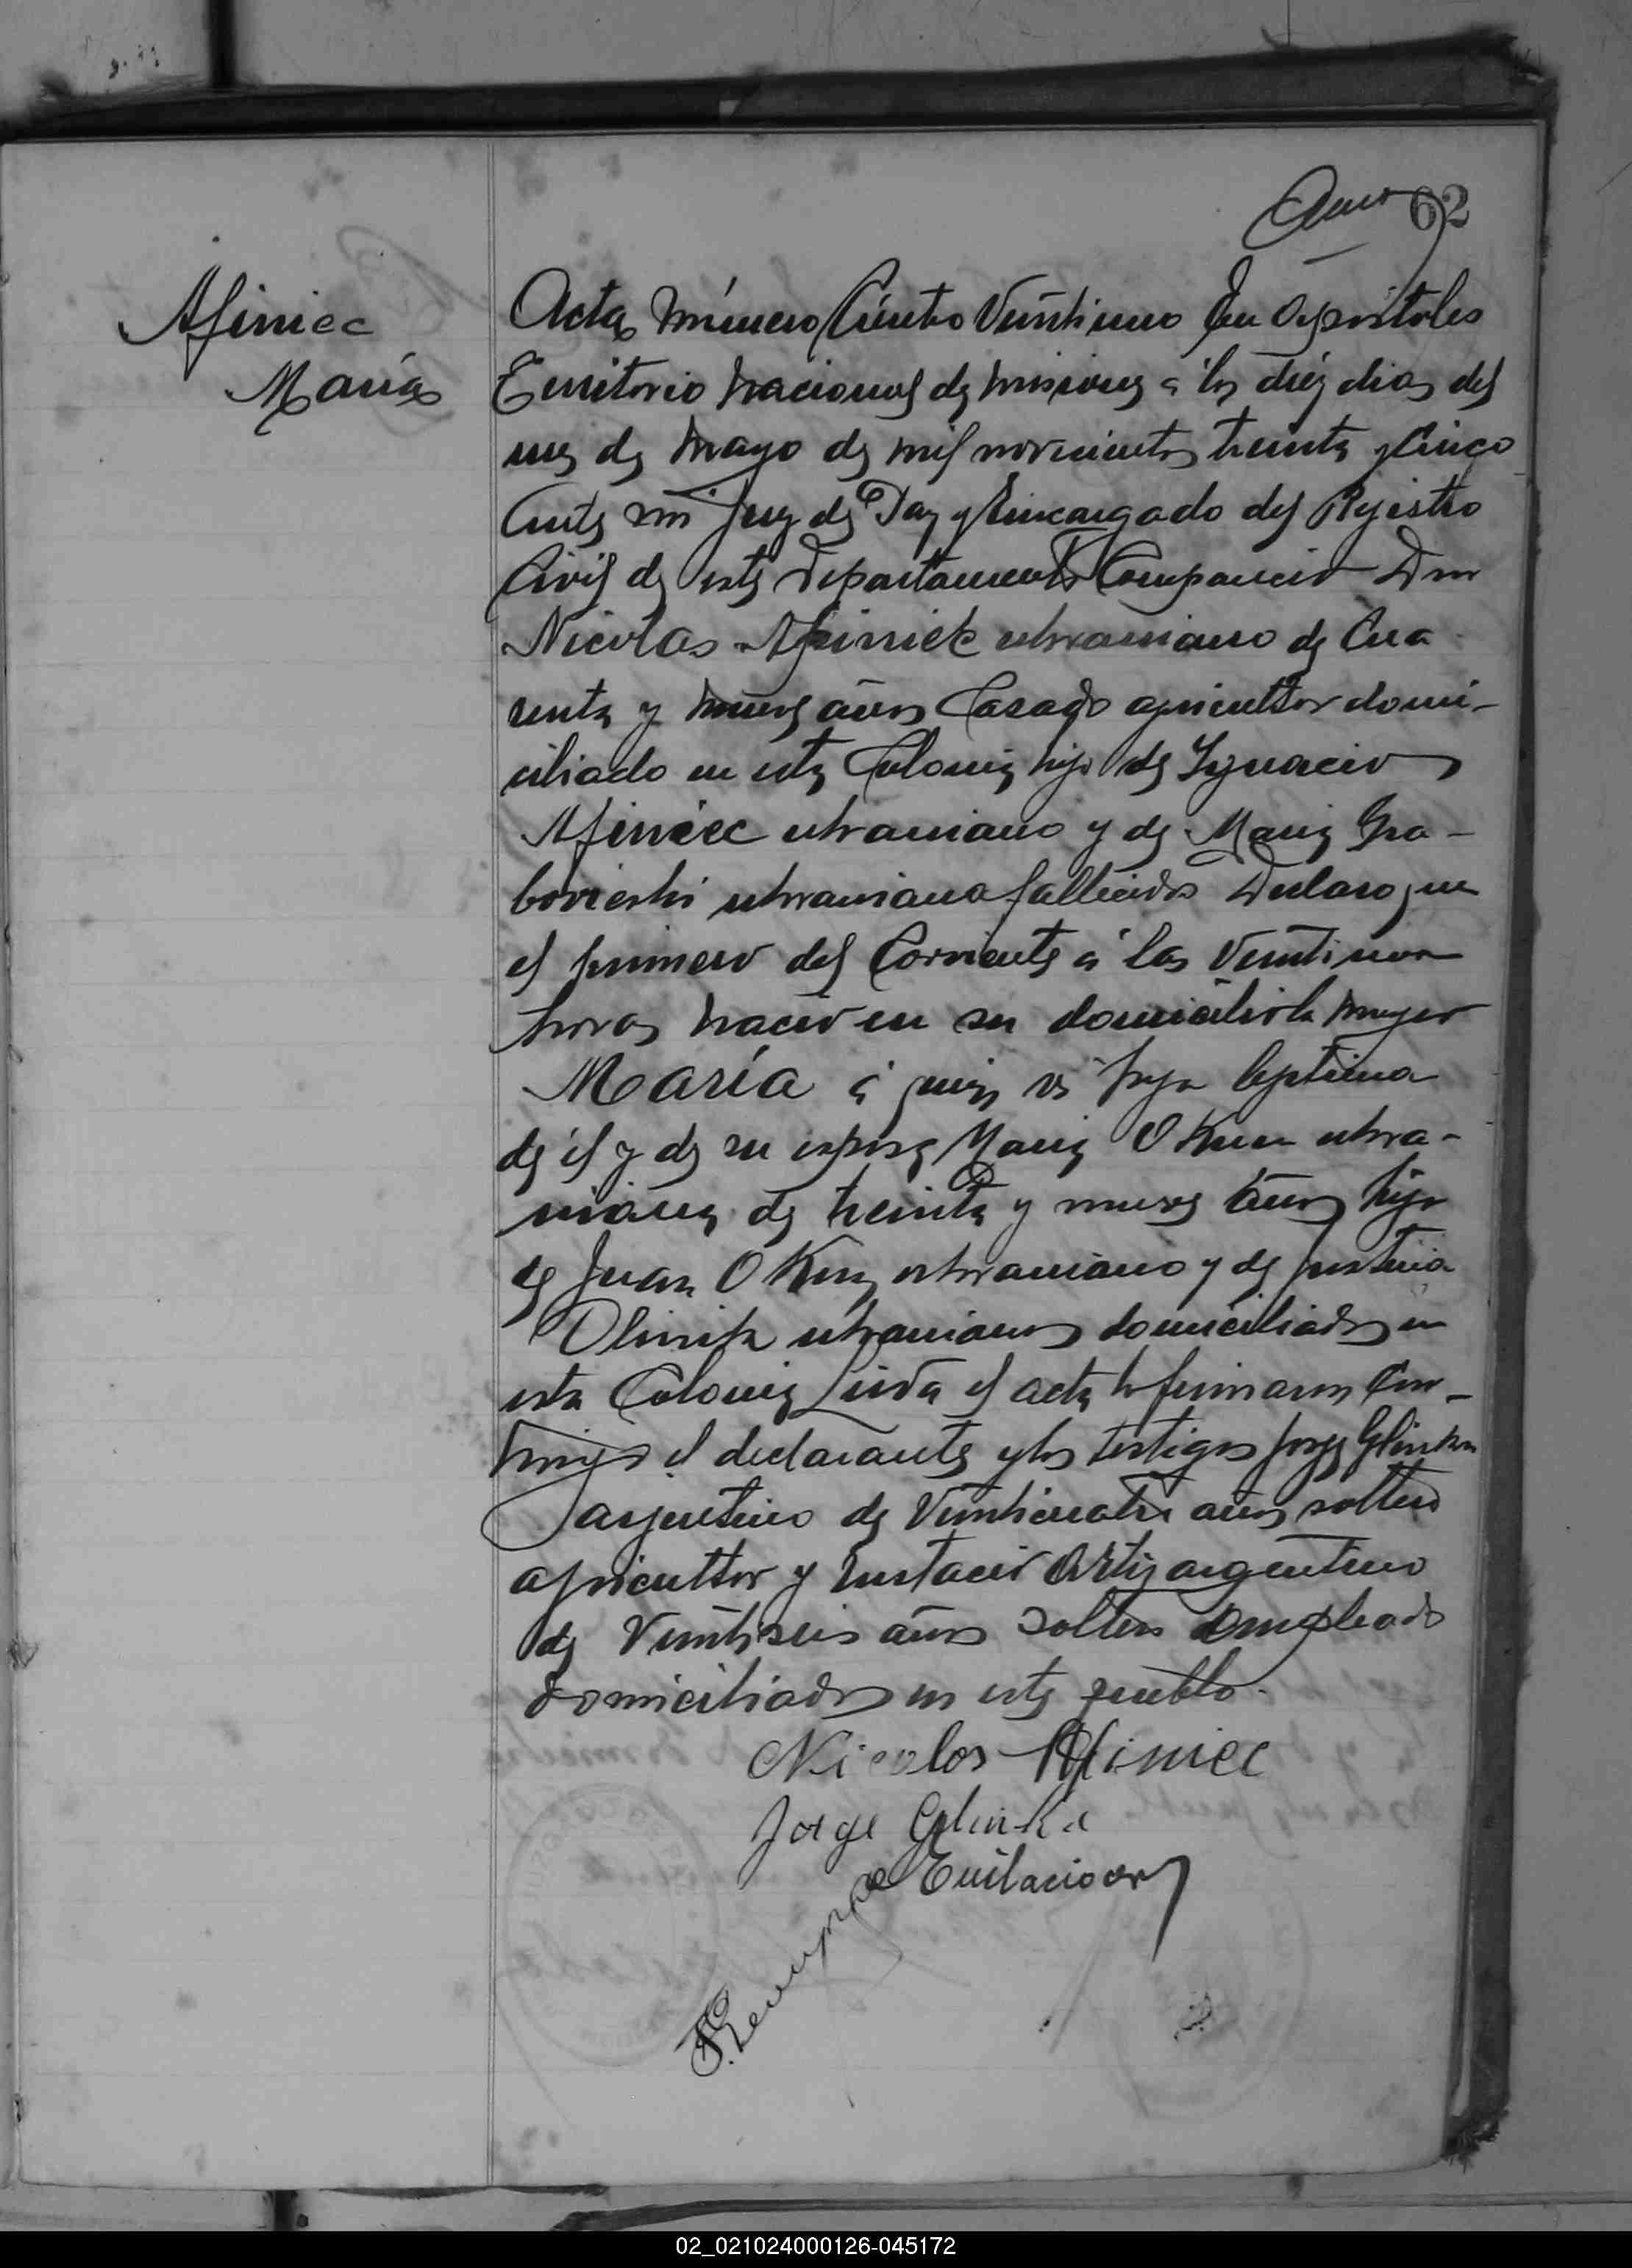 62
Afiniec
María
Acta Número Ciento Veintiuno En Apóstoles
Territorio Nacional de Misiones a los diez dias del
mes de Mayo de mil novecientos treinta y Cinco
Ante mi Juez de Paz y Encargado del Rejistro
Civil de este Departamento Compareció Don
Nicolas Afiniek ukraniano de Cua
renta y nueve años Casado agricultor domi-
ciliado en esta Colonia hijo de Ygnacio
Afiniec ukraniano y de Maria Gra-
bovieski ukraniana fallecidos Declaro que
el primero del Corriente á las Veintiuna
horas nació en su domicilio la mujer
María á quien vi hija lejitima
de él y de su esposa Maria OKun ukra-
niana de treinta y nueve años hija
de Juan OKun ukraniano y de Justina
Olinik ukranianos domiciliados en
esta Colonia Leida el acta la firmaron Con-
migo el declarante y los testigos Jorge Glinka
argentino de Veinticuatro años soltero
agricultor y Eustacio Ortiz argentino
de Veintiseis años soltero empleado
domiciliados en este pueblo.
Nicolas Afiniec
Jorge Glinka
02_021024000126-045172